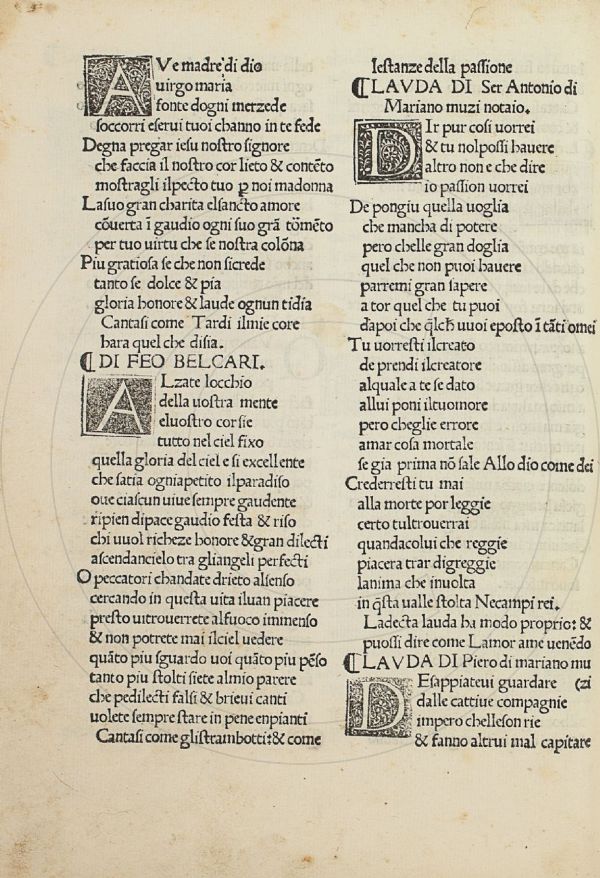 AVe madre di dio
uirgo maria
fonte dogni merzede
soccorri eserui tuoi channo in te fede
Degna pregar iesu nostro signore
che faccia il nostro cor lieto & contēto
mostragli ilpecto tuo ꝑ noi madonna
Lasuo gran charita elsancto amore
cōuerta ī gaudio ogni suo grā tōmēto
per tuo uirtu che se nostra colōna
Piu gratiosa se che non sicrede
tanto se dolce & pia
gloria honore & laude ognun tidia
Cantasi come Tardi ilmie core
hara quel che disia.
¶DI FEO BELCARI.
ALzate locchio
della uostra mente
eluostro corsie
tutto nel ciel fixo
quella gloria del ciel e si excellente
che satia ogniapetito ilparadiso
oue ciascun uiue sempre gaudente
ripien dipace gaudio festa & riso
chi uuol richeze honore & gran dilecti
ascendancielo tra gliangeli perfecti
O peccatori chandate drieto alsenso
cercando in questa uita iluan piacere
presto uitrouerrete alfuoco immenso
& non potrete mai ilciel uedere
quāto piu sguardo uoi quāto piu pēso
tanto piu stolti siete almio parere
che pedilecti falsi & brieui canti
uolete sempre stare in pene enpianti
Cantasi come glistrambotti: & come
lestanze della passione
¶LAVDA DI Ser Antonio di
Mariano muzi notaio.
DIr pur cosi uorrei
& tu nolpossi hauere
altro non e che dire
io passion uorrei
De pongiu quella uoglia
che mancha di potere
pero chelle gran doglia
quel che non puoi hauere
parremi gran sapere
a tor quel che tu puoi
dapoi che q̄lch uuoi eposto ī tāti omei
Tu uorresti ilcreato
de prendi ilcreatore
alquale a te se dato
allui poni iltuomore
pero cheglie errore
amar cosa mortale
se gia prima nō sale Allo dio come dei
Crederresti tu mai
alla morte por leggie
certo tultrouerrai
quandacolui che reggie
piacera trar digreggie
lanima che inuolta
in q̄sta ualle stolta Necampi rei.
Ladecta lauda ha modo proprio: &
puossi dire come Lamor ame uenēdo
¶LAVDA DI Piero di mariano mu
DEsappiateui guardare (zi
dalle cattiue compagnie
impero chelleson rie
& fanno altrui mal capitare